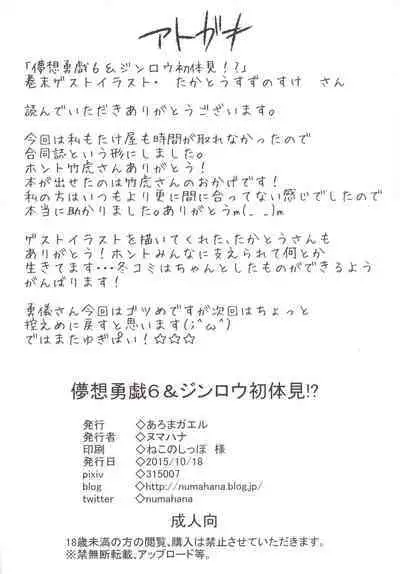 アトガキ
「儚想勇戯6＆ジンロウ初体見！？」
巻末ゲストイラスト・ たかとうすずのすけ さん
読んでいただきありがとうございます。
今回は私もたけ屋も時間が取れなかったので
合同誌という形にしました。
ホント竹虎さんありがとう！
本が出せたのは竹虎さんのおかげです！
私の方はいつもより更に間に合ってない感じでしたので
本当に助かりました。ありがとうm(_ _)m
ゲストイラストを描いてくれた、たかとうさんも
ありがとう！ホントみんなに支えられて何とか
生きてます・・・冬コミはちゃんとしたものができるよう
がんばります！
勇儀さん今回はゴツめですが次回はちょっと
控えめに戻すと思います(;^ω^)
ではまたゆぎぱい！☆☆☆
儚想勇戯6＆ジンロウ初体見!?
発行 ◇あろまガエル
発行者 ◇ヌマハナ
印刷 ◇ねこのしっぽ 様
発行日 ◇2015/10/18
pixiv ◇315007
blog ◇http://numahana.blog.jp/
twitter ◇numahana
成人向
18歳未満の方の閲覧、購入は禁止させていただきます。
※禁無断転載、アップロード等。